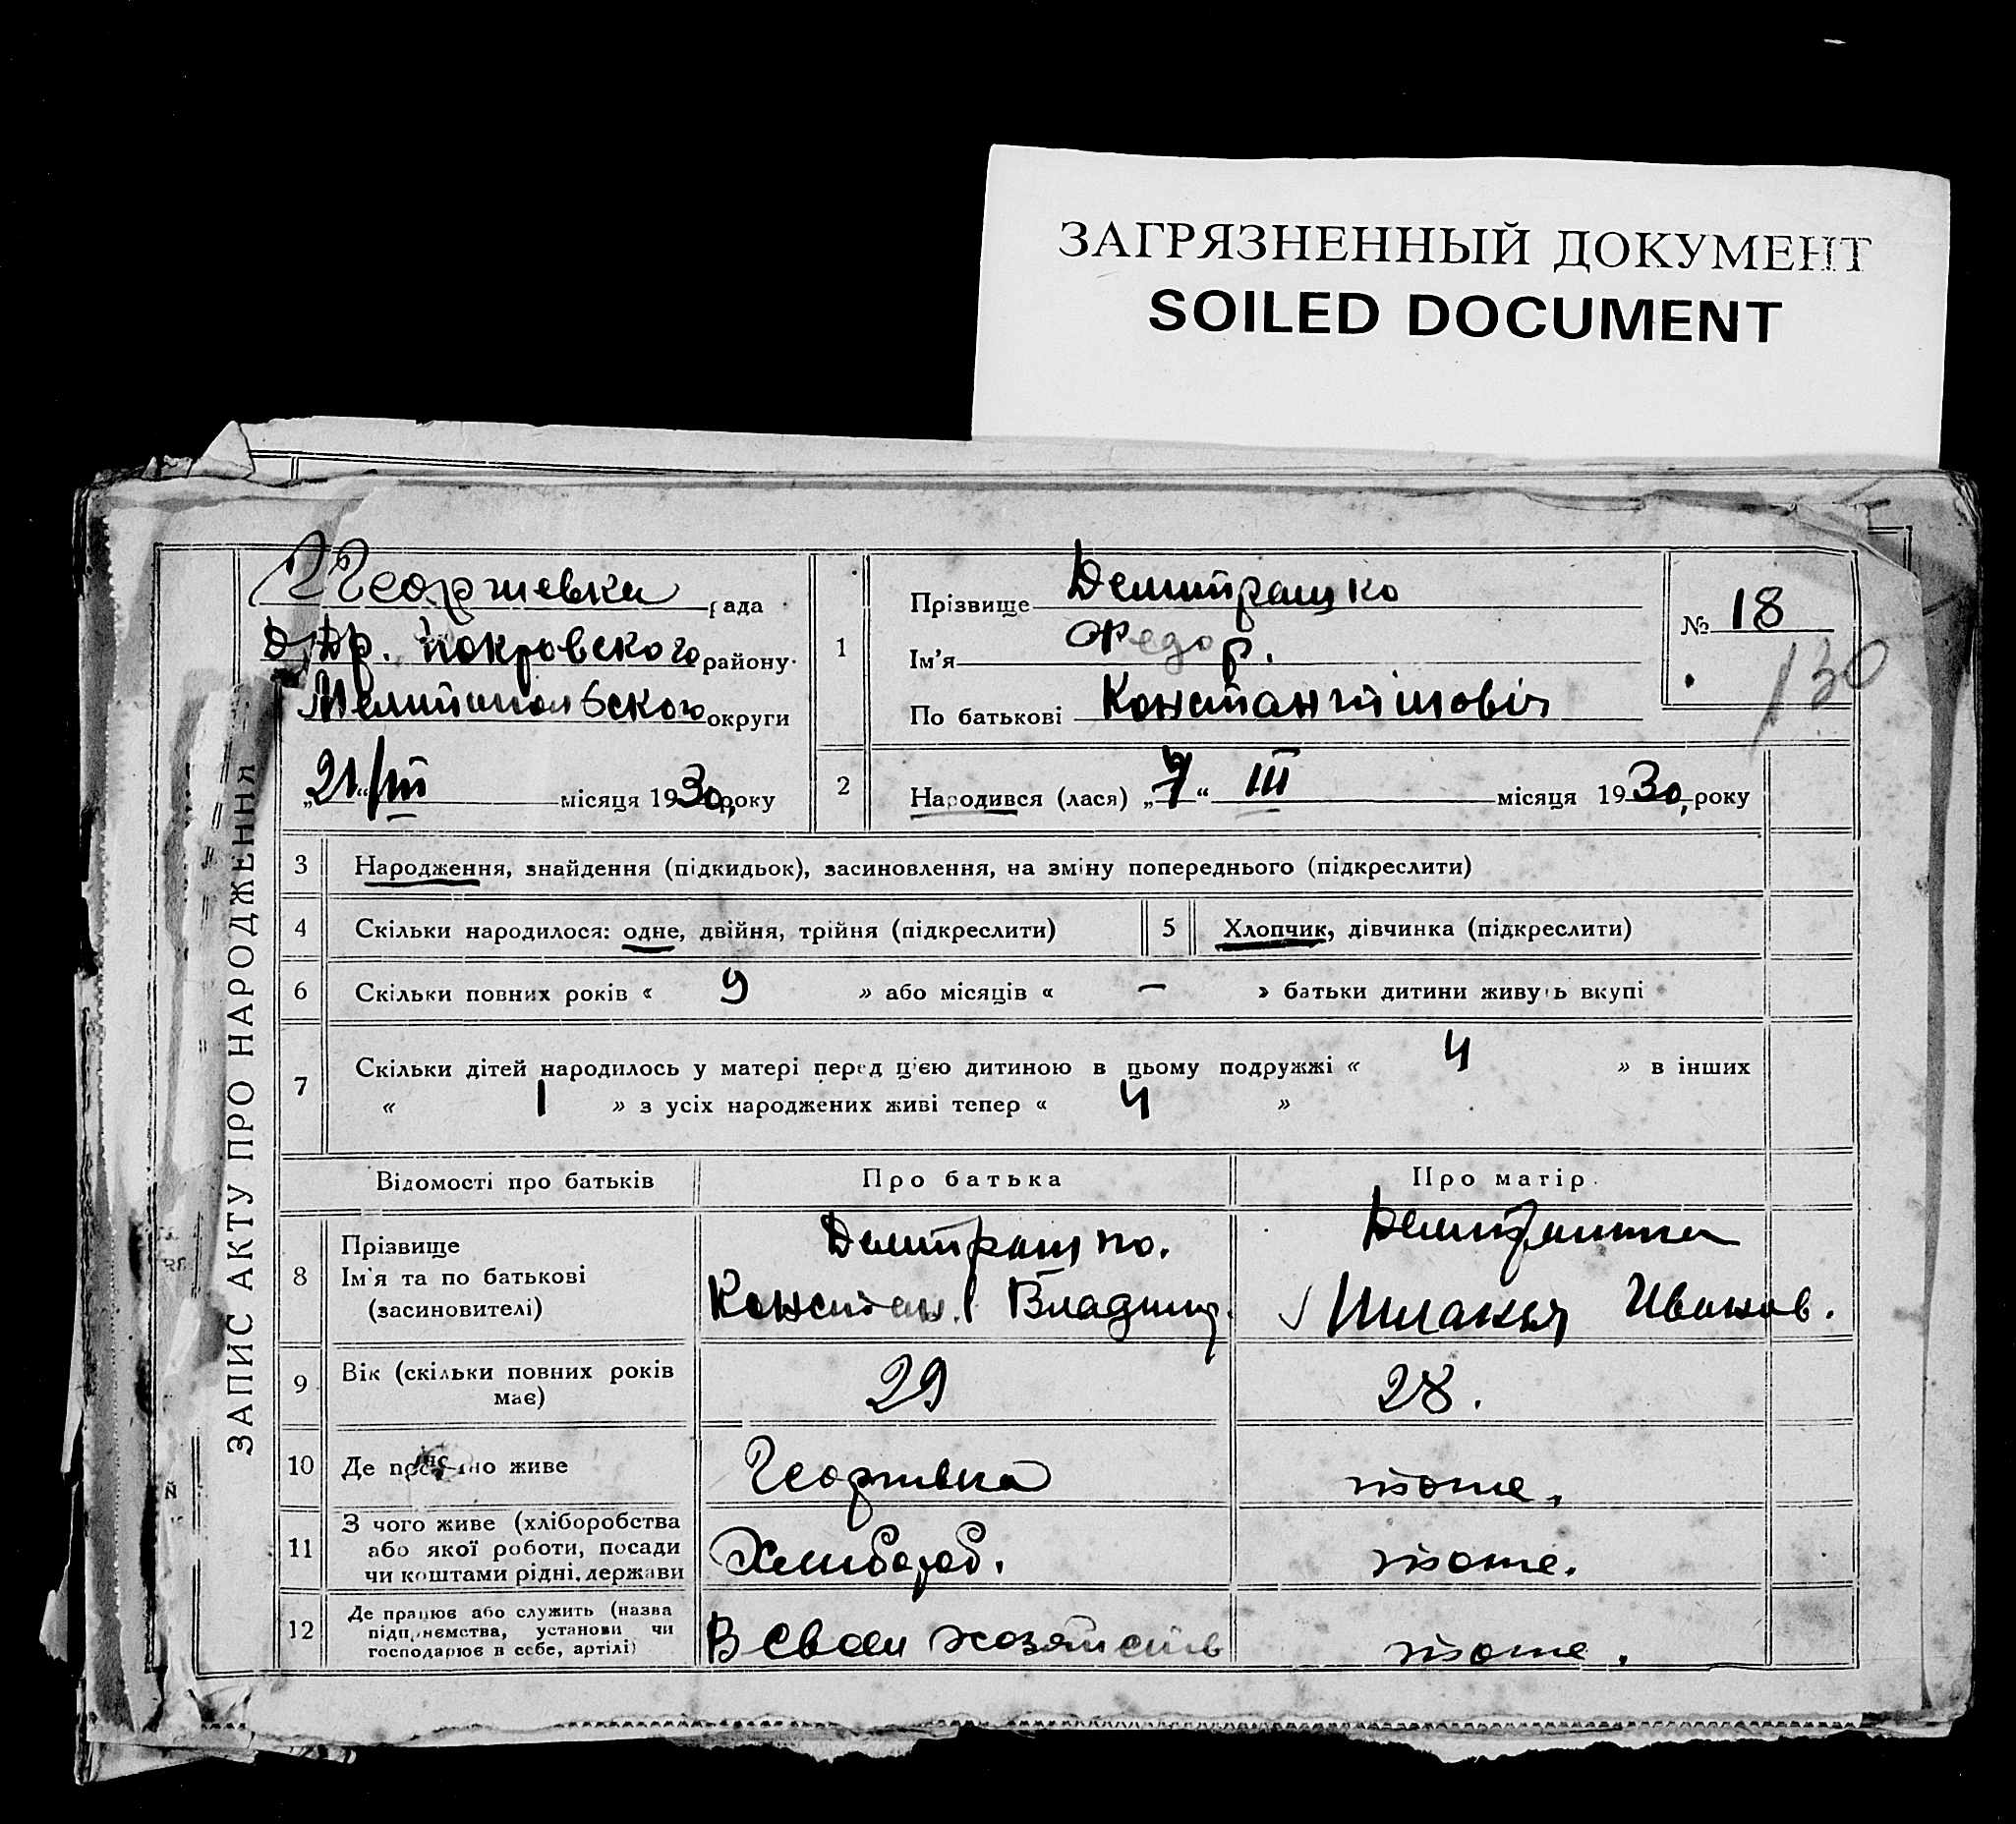 ЗАГРЯЗНЕННЫЙ ДОКУМЕНТ
SOILED DOCUMENT
ЗАПИС АКТУ ПРО НАРОДЖЕННЯ
Георгиевка рада
Покровского району
Мелитопольского округи
„21“ III місяця 1930, року
1
Прізвище Демитрашко
Ім’я Федор.
По батькові Константiновiч
№ 18
130
2
Народився (лася) „7“ III місяця 1930, року
3 Народження, знайдення (підкидьок), засиновлення, на зміну попереднього (підкреслити)
4 Скільки народилося: одне, двійня, трійня (підкреслити)
5 Хлопчик, дівчинка (підкреслити)
6 Скільки повних років « 9 » або місяців « — » батьки дитини живуть вкупі
7 Скільки дітей народилось у матері перед ц’єю дитиною в цьому подружжі « 4 » в інших
« 1 » з усіх народжених живі тепер « 4 »
Відомості про батьків Про батька Про матір
8 Прізвище
Ім’я та по батькові
(засиновителі)
Демитрашко.
Констан. Владимир.
Иванов.
9 Вік (скільки повних років
має)
29 28.
10 Де постійно живе Георгивка тоже.
11 З чого живе (хліборобства
або якої роботи, посади
чи коштами рідні, держави
Хлибороб. тоже.
12 Де працює або служить (назва
підприємства, установи чи
господарює в себе, артілі)
В своем хозяйств тоже.